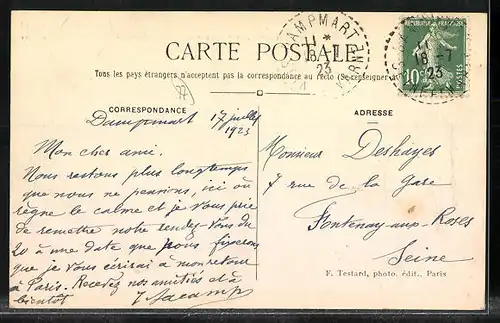 CARTE POSTALE
Tous les pays étrangers n'acceptent pas la correspondance au recto (Se renseigner
CORRESPONDANCE
ADRESSE
Dampmart 17 juillet
1923
Mon cher ami.
Nous restons plus longtemps
que nous ne pensions, ici où
règne le calme et je vous prie
de remettre notre rendez-vous du
20 à une date que nous fixerons
que je vous écrirai à mon retour
à Paris. Recevez nos amitiés et à
bientôt
Monsieur Deshayes
7 rue de la Gare
Fontenay-aux-Roses
Seine
F. Testard, photo. édit., Paris
DAMPMART
11 *
18 -7
23
MARNE
18 -7
23
10
POSTES